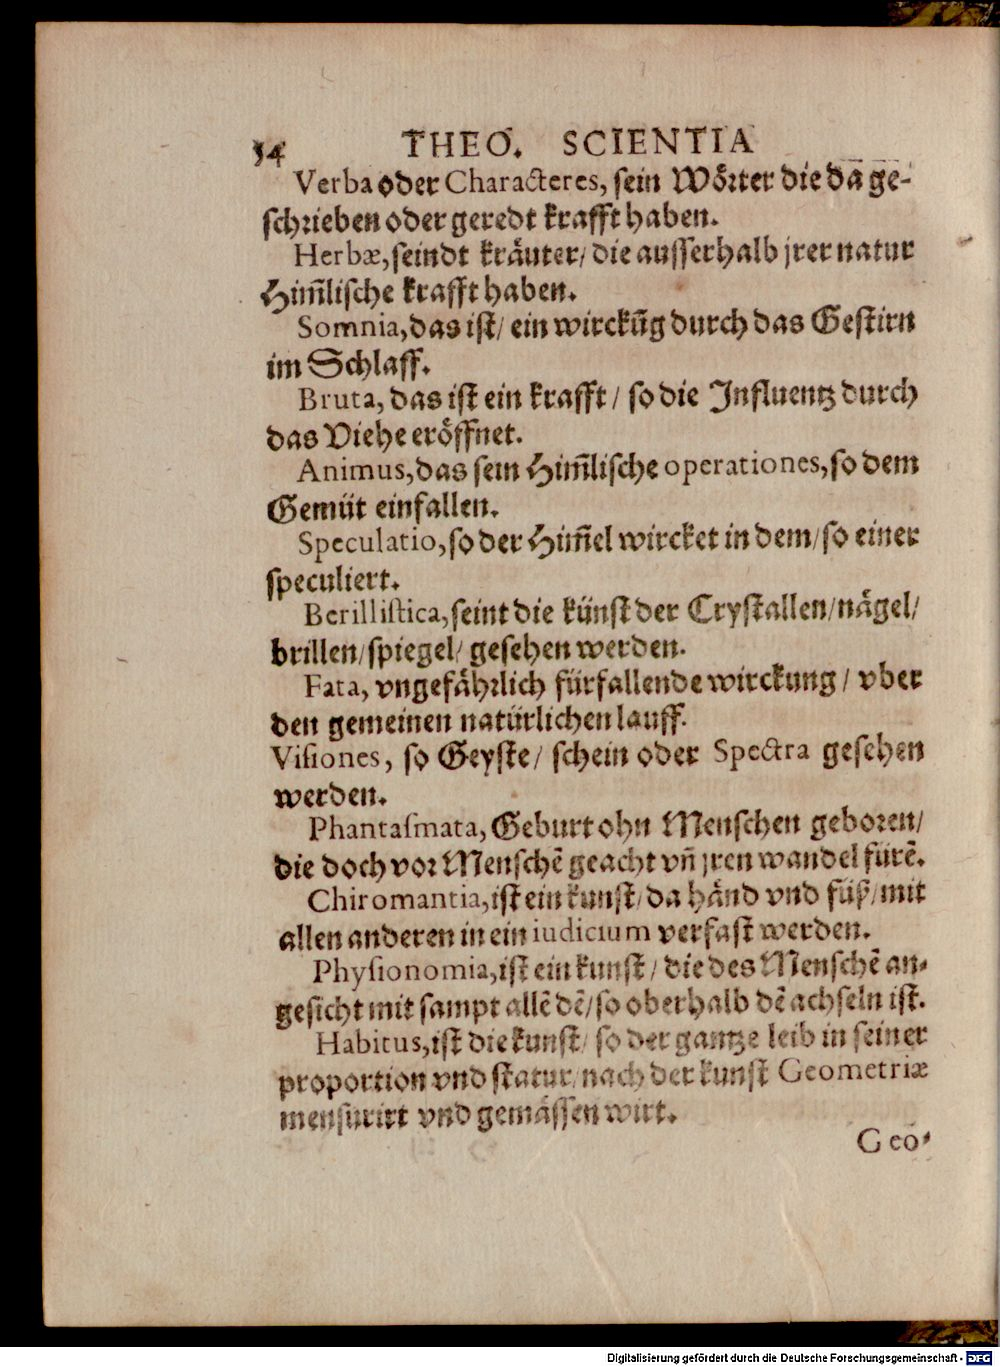 34 THEO. SCIENTIA
Verba oder Characteres, sein Wörter die da ge-
schrieben oder geredt krafft haben.
Herbæ, seindt kräuter/ die ausserhalb jrer natur
Him̃lische krafft haben.
Somnia, das ist/ ein wirckũg durch das Gestirn
im Schlaff.
Bruta, das ist ein krafft/ so die Influentz durch
das Viehe eröffnet.
Animus, das sein Him̃lische operationes, so dem
Gemüt einfallen.
Speculatio, so der Him̃el wircket in dem/ so einer
speculiert.
Berillistica, seint die künst der Crystallen/ nägel/
brillen/ spiegel/ gesehen werden.
Fata, vngefährlich fürfallende wirckung/ vber
den gemeinen natürlichen lauff.
Visiones, so Geyste/ schein oder Spectra gesehen
werden.
Phantasmata, Geburt ohn Menschen geboren/
die doch vor Menschẽ geacht vñ jren wandel fürẽ.
Chiromantia, ist ein kunst/ da händ vnd füß/ mit
allen anderen in ein iudicium verfast werden.
Physionomia, ist ein kunst/ die des Menschẽ an-
gesicht mit sampt allẽ dẽ/ so oberhalb dẽ achseln ist.
Habitus, ist die kunst/ so der gantze leib in seiner
proportion vnd statur/ nach der kunst Geometriæ
mensurirt vnd gemässen wirt.
Geo-
Digitalisierung gefördert durch die Deutsche Forschungsgemeinschaft - DFG